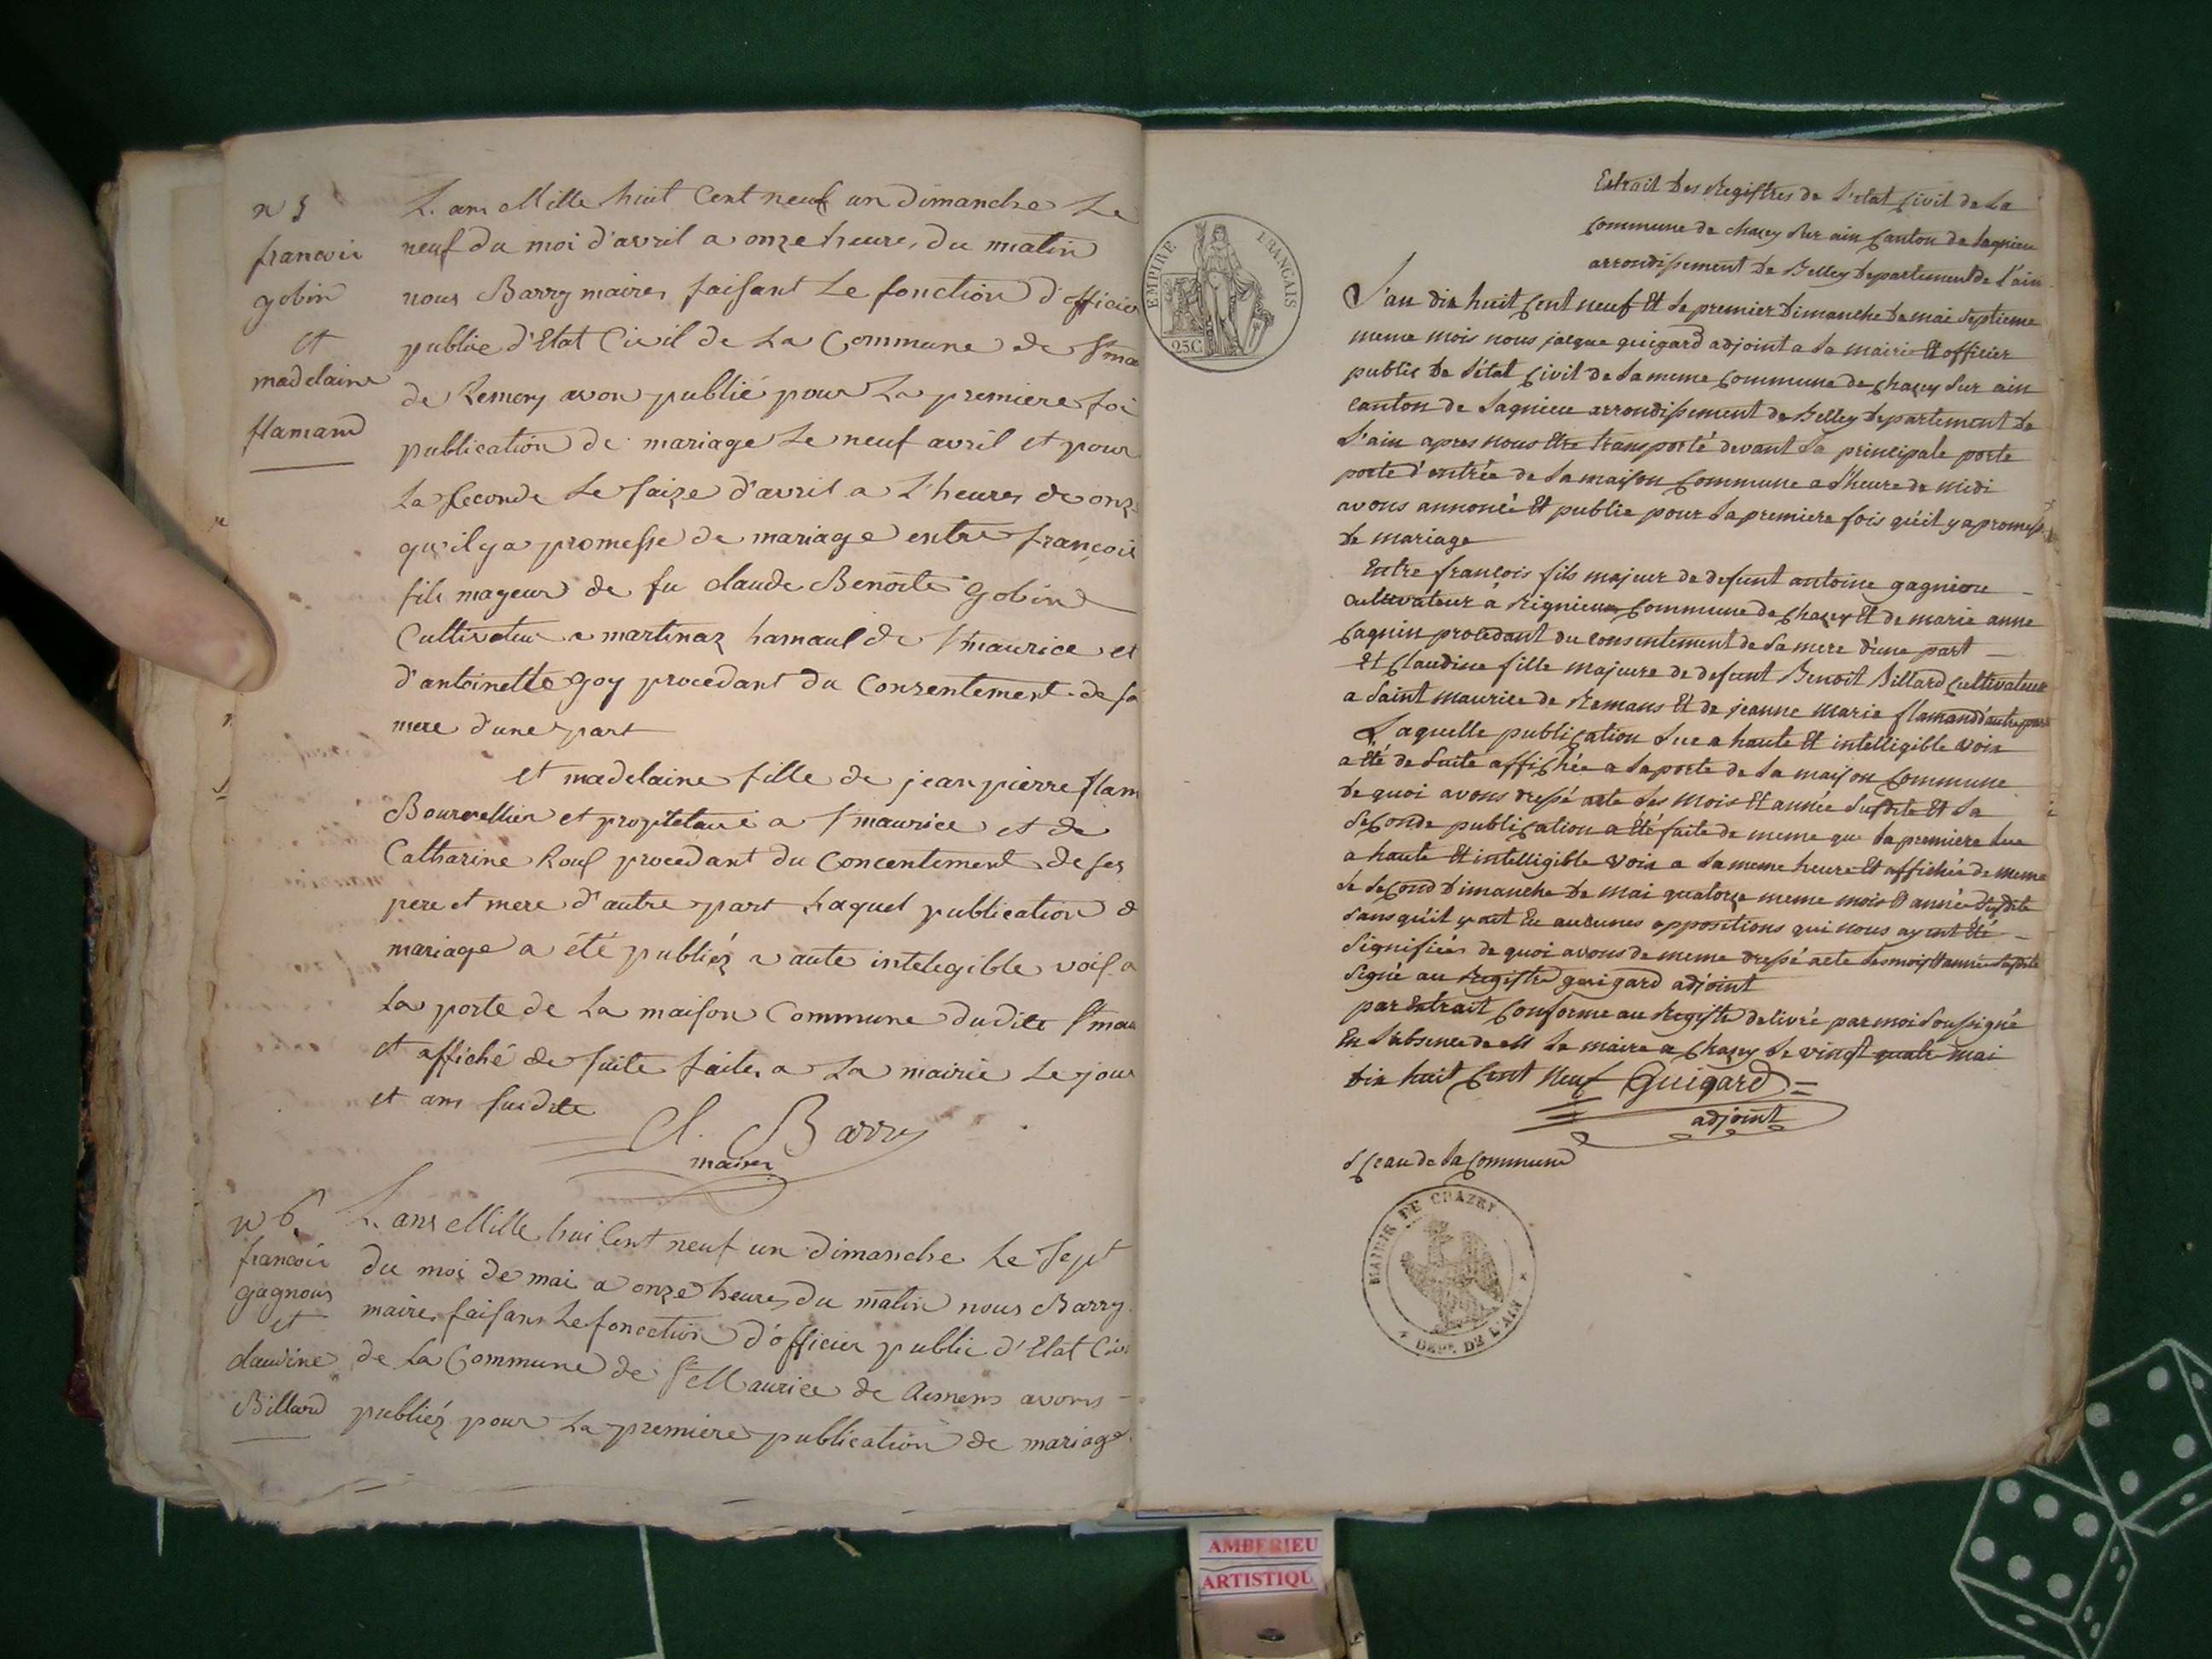 n 5
francoi
gobin
et
madelaine
flamand
L. an Mille huit Cent neuf un Dimanche Le
neuf du moi d'avril a onze heure, du matin
nous Barry maire, faisant Le fonction d'officier
public d'Etat Civil de La Commune de St mau
de Remens avon publié pour La premiere foi
publication de mariage Le neuf avril et pour
La seconde Le saize d'avril a L'heure, de onz
qu'il y a promesse de mariage entre françois
fils mageur de fu claude Benoite gobin
Cultivateur a martinaz hamaul de St maurice et
d'antoinette goy procedant du Consentement de sa
mere d'une part
et madelaine fille de jean pierre flam
Bourrellier et propietaire a St maurice et de
Catharine Rouf procedant du Concentement de ses
pere et mere d'autre part Laquel publication d
mariage a été publiéz a aute intelegible vois a
La porte de La maison Commune dudite St mau
et affiché de suite faite, a La mairie Le jour
et an susdite
Cl. Barry
maire
n 6.
francoi
gagnoux
et
claudine
Billard
L. ans Mille hui Cent neuf un dimanche Le Sept
du moi de mai a onze heure, du matin nous Barry
maire, faisans Le fonction d'officier public d'Etat Civi
de La Commune de St Maurice de Remens avons
publiéz pour La premiere publication de mariage
EMPIRE FRANÇAIS
25C
Extrait Des Registres de L'etat Civil de La
Commune de chazey sur ain Canton de Lagnieu
arrondissement De Belley Departement de L'ain
L'an dix huit Cent neuf Et Le premier Dimanche De mai septieme
meme mois nous jacque guigard adjoint a La mairie Et officier
public De L'état Civil de La meme Commune de chazey Sur ain
Canton de Lagnieu arrondissement de Belley Departement De
L'ain apres nous Etre transporté devant La principale porte
porte d'entrée de La maison Commune a L'heure de midi
avons annoncé Et publie pour La premiere fois qu'il y a promesse
De mariage
Entre françois fils majeur de defunt antoine gagniou
Cultivateur a Rignieu Commune de Chazey Et de marie anne
Cagnin procedant du consentement de Sa mere d'une part
Et Claudine fille majeure de defunt Benoit Billard Cultivateur
a Saint maurice de Remans Et de jeanne marie flamand d'autre part
Laquelle publication Lue a haute Et intelligible voix
a Eté de Suite affichée a La porte de La maison Commune
De quoi avons dressé acte Les mois Et année Susdite Et La
Seconde publication a Eté faite de meme que La premiere Lue
a haute Et intelligible voix a La meme heure Et affichée de meme
Le Second Dimanche De mai quatorze meme mois Et année Susdite
Sans qu'il y ait Eu aucunes oppositions qui nous ayent Eté
Signifiées de quoi avons de meme dressé acte Les mois Et année Susdite
Signé au Registre guigard adjoint
par Extrait Conforme au Registre delivré par moi Soussigné
En L'absence de M Le maire a Chazey Le vingt quatre mai
Dix huit Cent Neuf Guigard
adjoint
SCeau de La Commune
MAIRIE DE CHAZEY
DEPt. DE L'AIN
AMBERIEU
ARTISTIQU